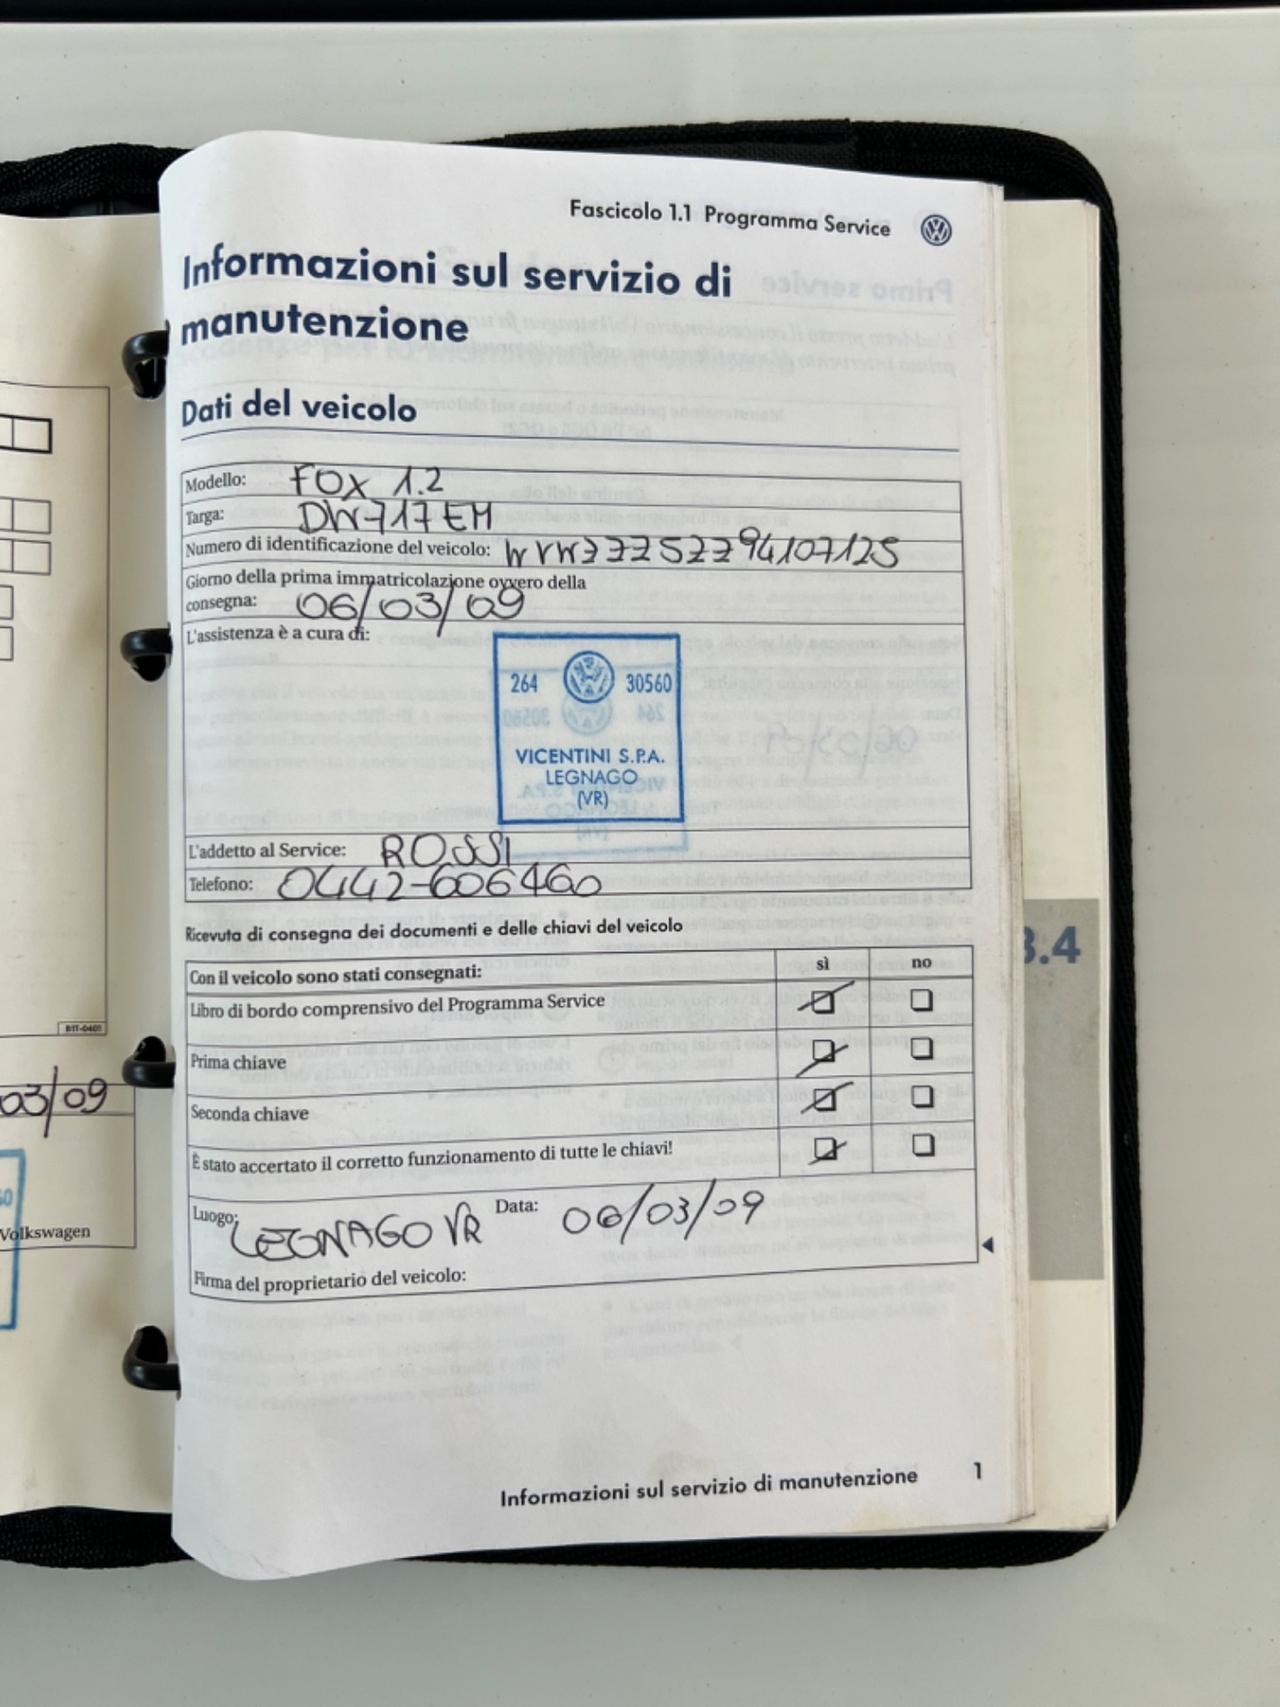 Fascicolo 1.1 Programma Service
Informazioni sul servizio di
manutenzione
Dati del veicolo
Modello: FOX 1.2
Targa: DW717EM
Numero di identificazione del veicolo: WVWZZZ5ZZ94107125
Giorno della prima immatricolazione ovvero della
consegna: 06/03/09
L'assistenza è a cura di:
264 30560
VICENTINI S.P.A.
LEGNAGO
(VR)
L'addetto al Service: ROSSI
Telefono: 0442-606460
Ricevuta di consegna dei documenti e delle chiavi del veicolo
Con il veicolo sono stati consegnati: sì no
Libro di bordo comprensivo del Programma Service
Prima chiave
Seconda chiave
È stato accertato il corretto funzionamento di tutte le chiavi!
Luogo: LEGNAGO VR Data: 06/03/09
Firma del proprietario del veicolo:
Informazioni sul servizio di manutenzione 1
B1T-0401
03/09
Volkswagen
3.4